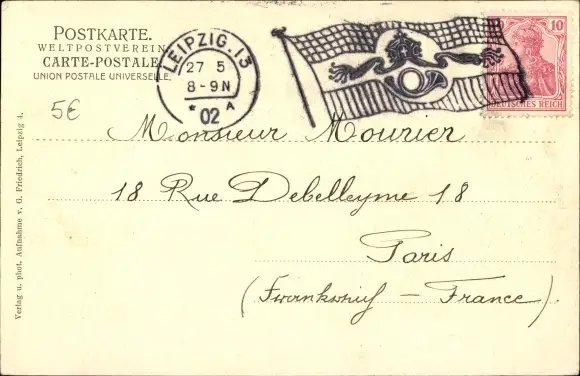 POSTKARTE.
WELTPOSTVEREIN
CARTE-POSTALE
UNION POSTALE UNIVERSELLE.
LEIPZIG.13
27 5
8-9N
* 02 A
10
DEUTSCHES REICH
5€
Monsieur Mourier
18 Rue Debelleyme 18
Paris
(Frankreich – France).
Verlag u. phot. Aufnahme v. G. Friedrich, Leipzig 4.